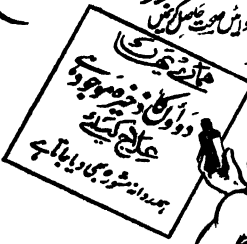 صحت حاصل
ہمارے
دواؤں کا ذخیرہ موجود ہے
علاج کیلئے
ہمدردانہ مشورہ بھی دیا جاتا ہے